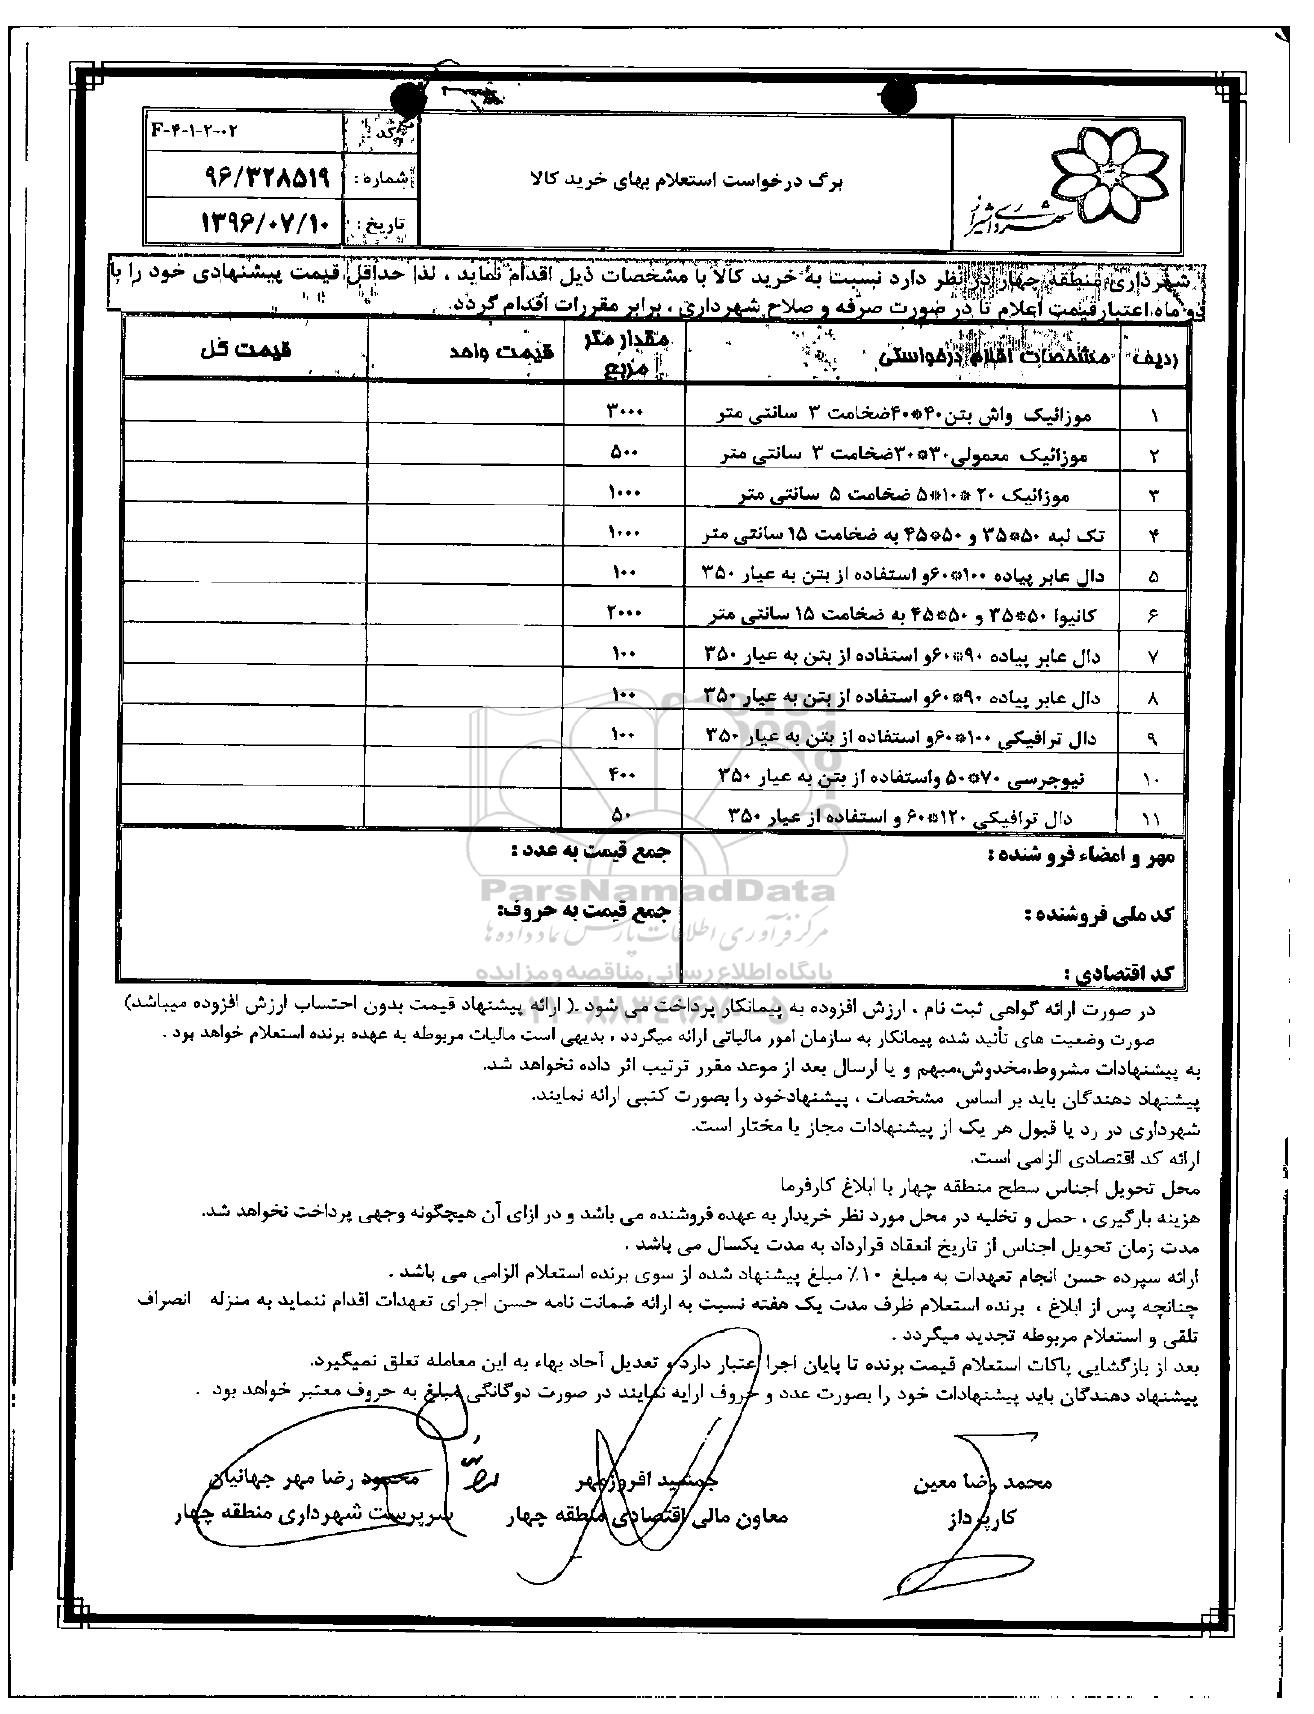 شهرداری شیراز
برگ درخواست استعلام بهای خرید کالا
کد : F-۴-۱-۲-۰۲
شماره : ۹۶/۳۲۸۵۱۹
تاریخ : ۱۳۹۶/۰۷/۱۰
شهرداری منطقه چهار در نظر دارد نسبت به خرید کالا با مشخصات ذیل اقدام نماید ، لذا حداقل قیمت پیشنهادی خود را با
دو ماه اعتبار قیمت اعلام تا در صورت صرفه و صلاح شهرداری ، برابر مقررات اقدام گردد.
ردیف مشخصات اقلام درخواستی مقدار متر مربع قیمت واحد قیمت کل
۱ موزائیک واش بتن ۴۰*۴۰ضخامت ۳ سانتی متر ۳۰۰۰
۲ موزائیک معمولی۳۰*۳۰ضخامت ۳ سانتی متر ۵۰۰
۳ موزائیک ۲۰ *۱۰*۵ ضخامت ۵ سانتی متر ۱۰۰۰
۴ تک لبه ۵۰*۳۵ و ۵۰*۴۵ به ضخامت ۱۵ سانتی متر ۱۰۰۰
۵ دال عابر پیاده ۱۰۰*۶۰و استفاده از بتن به عیار ۳۵۰ ۱۰۰
۶ کانیوا ۵۰*۳۵ و ۵۰*۴۵ به ضخامت ۱۵ سانتی متر ۲۰۰۰
۷ دال عابر پیاده ۹۰*۶۰و استفاده از بتن به عیار ۳۵۰ ۱۰۰
۸ دال عابر پیاده ۹۰*۶۰و استفاده از بتن به عیار ۳۵۰ ۱۰۰
۹ دال ترافیکی ۱۰۰*۶۰و استفاده از بتن به عیار ۳۵۰ ۱۰۰
۱۰ نیوجرسی ۷۰*۵۰ واستفاده از بتن به عیار ۳۵۰ ۴۰۰
۱۱ دال ترافیکی ۱۲۰*۶۰ و استفاده از عیار ۳۵۰ ۵۰
مهر و امضاء فروشنده : جمع قیمت به عدد :
ParsNamadData
کد ملی فروشنده : جمع قیمت به حروف:
مرکز فرآوری اطلاعات پارس نماد داده ها
پایگاه اطلاع رسانی مناقصه و مزایده
کد اقتصادی :
در صورت ارائه گواهی ثبت نام ، ارزش افزوده به پیمانکار پرداخت می شود .( ارائه پیشنهاد قیمت بدون احتساب ارزش افزوده میباشد)
صورت وضعیت های تأئید شده پیمانکار به سازمان امور مالیاتی ارائه میگردد ، بدیهی است مالیات مربوطه به عهده برنده استعلام خواهد بود .
به پیشنهادات مشروط،مخدوش،مبهم و یا ارسال بعد از موعد مقرر ترتیب اثر داده نخواهد شد.
پیشنهاد دهندگان باید بر اساس مشخصات ، پیشنهادخود را بصورت کتبی ارائه نمایند.
شهرداری در رد یا قبول هر یک از پیشنهادات مجاز یا مختار است.
ارائه کد اقتصادی الزامی است.
محل تحویل اجناس سطح منطقه چهار با ابلاغ کارفرما
هزینه بارگیری ، حمل و تخلیه در محل مورد نظر خریدار به عهده فروشنده می باشد و در ازای آن هیچگونه وجهی پرداخت نخواهد شد.
مدت زمان تحویل اجناس از تاریخ انعقاد قرارداد به مدت یکسال می باشد .
ارائه سپرده حسن انجام تعهدات به مبلغ ۱۰٪ مبلغ پیشنهاد شده از سوی برنده استعلام الزامی می باشد .
چنانچه پس از ابلاغ ، برنده استعلام ظرف مدت یک هفته نسبت به ارائه ضمانت نامه حسن اجرای تعهدات اقدام ننماید به منزله انصراف
تلقی و استعلام مربوطه تجدید میگردد .
بعد از بازگشایی پاکات استعلام قیمت برنده تا پایان اجرا اعتبار دارد و تعدیل آحاد بهاء به این معامله تعلق نمیگیرد.
پیشنهاد دهندگان باید پیشنهادات خود را بصورت عدد و حروف ارایه نمایند در صورت دوگانگی مبلغ به حروف معتبر خواهد بود .
محمد رضا معین جمشید افروزمهر محمود رضا مهر جهانیان
کارپرداز معاون مالی اقتصادی منطقه چهار سرپرست شهرداری منطقه چهار